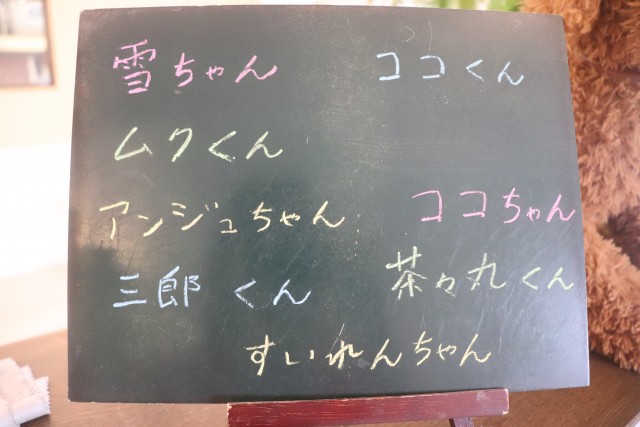 雪ちゃん ココくん
ムクくん
アンジュちゃん ココちゃん
三郎くん 茶々丸くん
すいれんちゃん